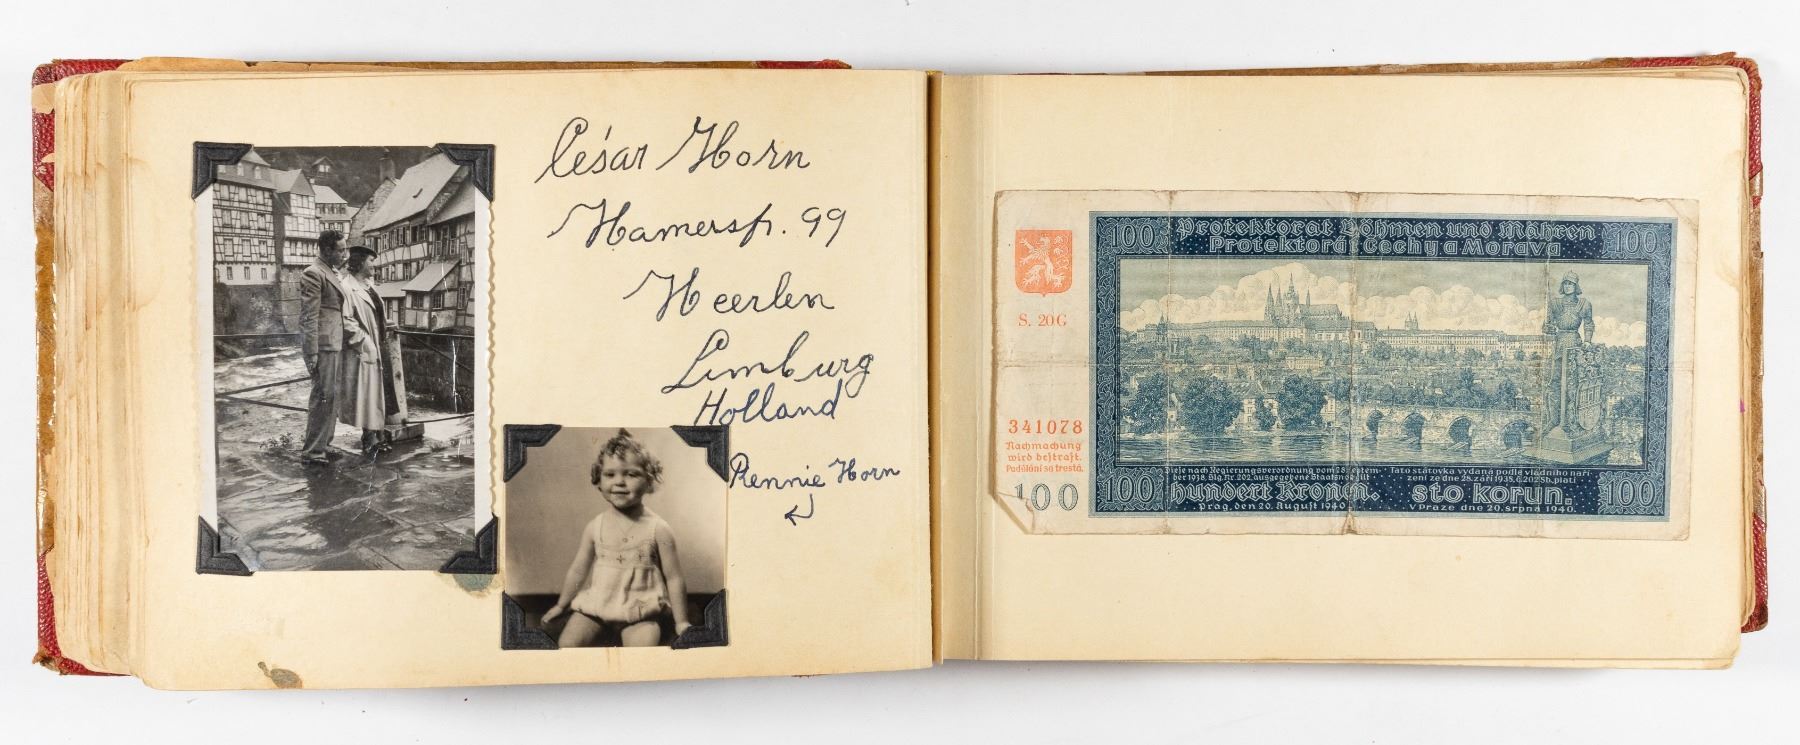 César Horn
Hamerstr. 99
Heerlen
Limburg
Holland
Rennie Horn
100 Protektorat Böhmen und Mähren 100
Protektorát Čechy a Morava
S. 20G
341078
Nachmachung
wird bestraft.
Padělání se trestá.
100
100
Diese nach Regierungsverordnung vom 28. Septem-
ber 1938, Slg. Nr. 202, ausgegebene Staatsnote gilt
hundert Kronen.
Prag, den 20. August 1940
Tato státovka vydaná podle vládního naří-
zení ze dne 28. září 1938, č. 202 Sb. platí
sto korun.
V Praze dne 20. srpna 1940.
100